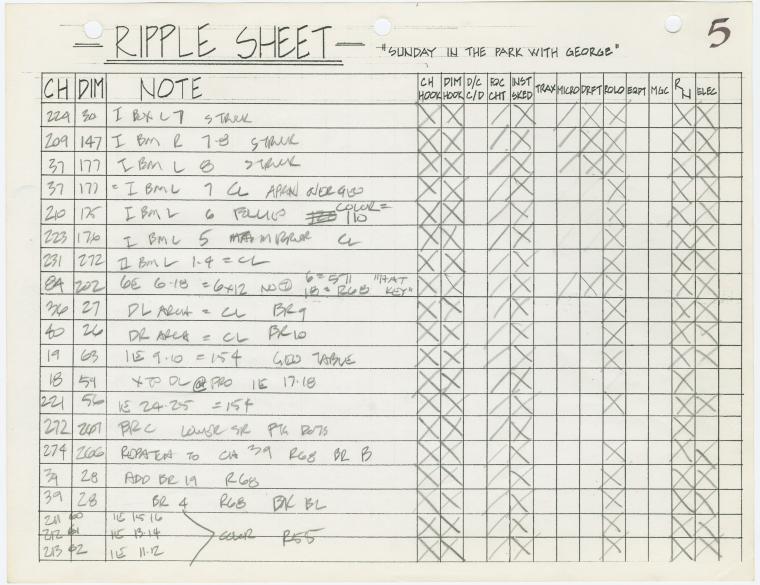 5
RIPPLE SHEET "SUNDAY IN THE PARK WITH GEORGE"
CH DIM NOTE CH HOOK DIM HOOK D/C C/D FOC CHT INST SKED TRAX MICRO DRFT ROLO EQPT MGC RN ELEC
224 30 I BOX L 7 STRUK
209 147 I BM R 7-8 STRUK
37 177 I BM L 8 STRUK
37 177 = I BM L 7 CL APRN
210 175 I BM L 6 COLOR = 110
223 176 I BM L 5 CL
231 272 II BM L 1-4 = CL
84 202 6E 6-18 = 6x12 6 = 511 "HAT
18 = R68 KEY"
36 27 DL ARCH = CL BR9
40 26 DR ARCH = CL BR10
19 63 1E 9-10 = 154 GEO TABLE
18 54 X TO DL @ PRO 1E 17-18
221 56 1E 24-25 = 154
272 267 BR C LOWER
274 266 REPATCH TO CH 39 R68 BR B
39 28 ADD BR 19 R68
39 28 BR 4 R68 BK BL
211 60 1E 15-16
212 61 1E 13-14 COLOR R55
213 62 1E 11-12